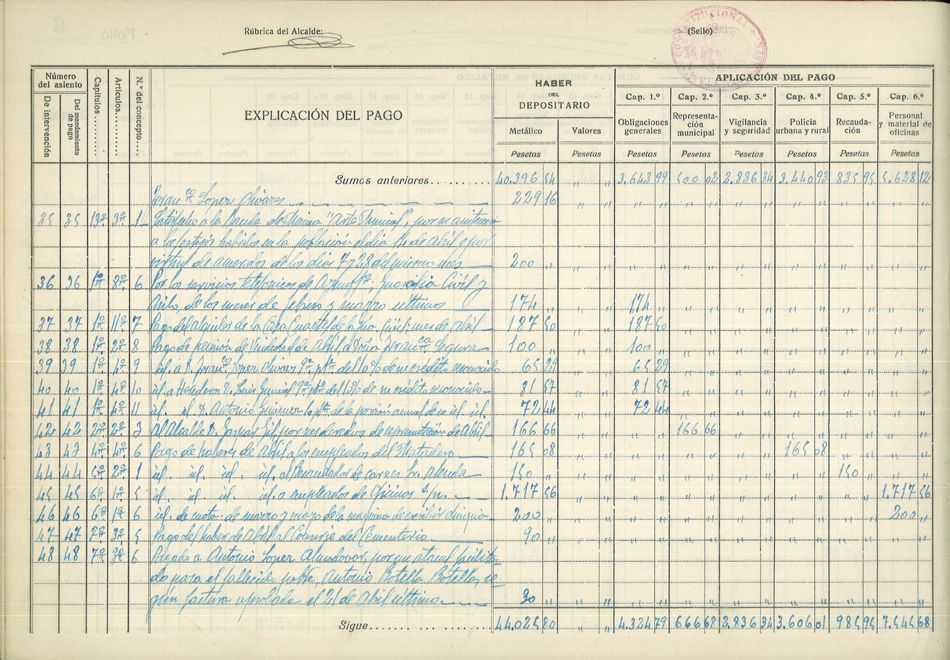 Rúbrica del Alcalde:
(Sello)
Número del asiento
De intervención
Del mandamiento de pago
Capítulos
Artículos
N.º del concepto
EXPLICACIÓN DEL PAGO
HABER DEL DEPOSITARIO
Metálico
Valores
Pesetas
Pesetas
APLICACIÓN DEL PAGO
Cap. 1.º Cap. 2.º Cap. 3.º Cap. 4.º Cap. 5.º Cap. 6.º
Obligaciones generales
Representación municipal
Vigilancia y seguridad
Policía urbana y rural
Recaudación
Personal y material de oficinas
Pesetas Pesetas Pesetas Pesetas Pesetas Pesetas
Sumas anteriores 40.396 54 " " 3.643 99 500 02 2.836 34 3.440 93 835 95 5.628 12
Franco. Lopez 229 16
35 35 13º 3º 1 Satisfecho a la Banda de Música "Arte Musical", por
a los festejos habidos en la población el día 14 de abril y por
virtud de acuerdos de los días 7 y 28 del mismo mes 200 "
36 36 1º 8º 6 Por los servicios telefónicos de Guardia Civil y
de los meses de febrero y marzo ultimos 174 " 174 "
37 37 1º 11º 7 Pago del alquiler de la Casa Cuartel de la Guardia Civil mes de abril 187 50 187 50
38 38 1º 2º 8 Pago de pensión de viudedad de Abril a Doña Franca. Segura 100 " 100 "
39 39 1º 4º 9 id. a D. Franco. 10% de su crédito reconocido 65 29 65 29
40 40 1º 4º 10 id. a Herederos D. Luis de su crédito reconocido 81 57 81 57
41 41 1º 4º 11 id. el D. Antonio Gimenez de la porción anual de su id. id. 72 44 72 44
42 42 2º 2º 3 Al Alcalde D. Gaspar Gil por sus derechos de representación de Abril 166 66 166 66
43 43 4º 4º 6 Pago de haberes de Abril a los empleados del Matadero 165 08 165 08
44 44 5º 2º 1 id. id. id. id. al Recaudador de carnes 150 150
45 45 6º 1º 5 id. id. id. id. a empleados de Oficinas s/n 1.717 56 1.717 56
46 46 6º 1º 6 id. de cuota de marzo y mayo de la maquina de escribir 200 " 200 "
47 47 7º 3º 5 Pago del haber de Abril al Conserje del Cementerio 90 "
48 48 7º 3º 6 Pagado a Antonio Lopez por un ataud facilita-
do para el fallecido pobre, Antonio Botella Botella, se-
gún factura aprobada el 21 de abril ultimo 30 "
Sigue 44.025 80 " " 4.324 79 666 68 2.836 34 3.606 01 985 95 7.545 68